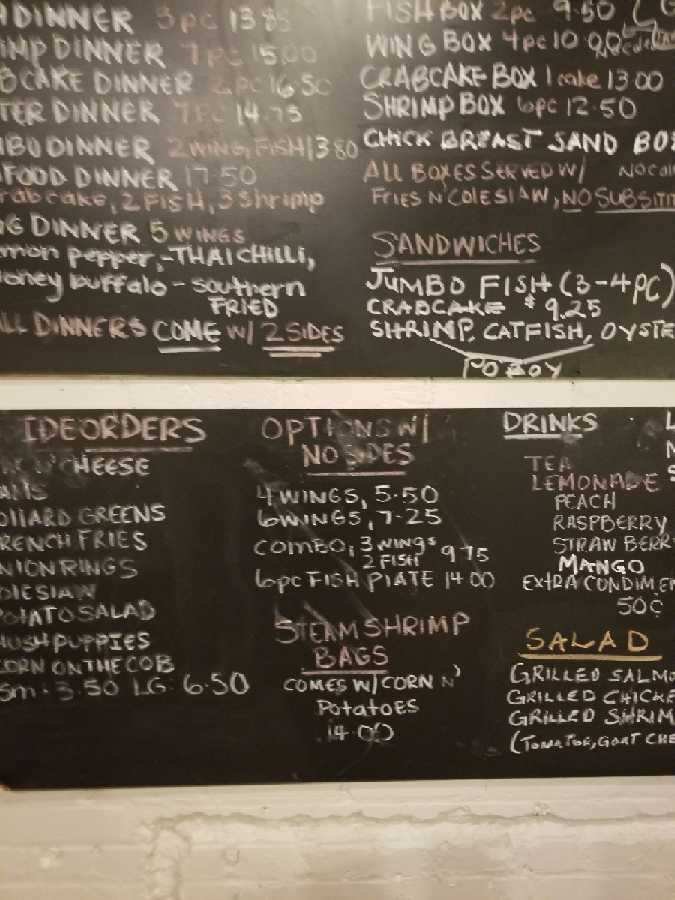 DINNER 3pc 13 85
DINNER 7pc 15.00
CAKE DINNER 2pc 16 50
TER DINNER 7pc 14.75
DINNER 2 WING, FISH 13 80
FOOD DINNER 17.50
crabcake, 2 FISH, 3 Shrimp
G DINNER 5 WINGS
mon pepper, -THAI CHILLI,
oney buffalo - southern
FRIED
LL DINNERS COME W/ 2 SIDES
FISH BOX 2pc 9.50
WING BOX 4pc 10.00
CRABCAKE BOX 1 cake 13 00
SHRIMP BOX 6pc 12.50
CHICK BREAST SAND BOX
ALL BOXES SERVED W/
FRIES N COLESLAW, NO SUBSTIT
SANDWICHES
JUMBO FISH (3-4PC)
CRABCAKE $9.25
SHRIMP, CATFISH, OYSTE
PO BOY
IDEORDERS
CHEESE
AMS
OLLARD GREENS
RENCH FRIES
NION RINGS
OLESLAW
POTATO SALAD
HUSH PUPPIES
CORN ON THE COB
Sm. 3.50 LG. 6.50
OPTIONS W/
NO SIDES
4 WINGS, 5.50
6 WINGS, 7.25
COMBO, 3 WINGS
2 FISH 9 75
6pc FISH PLATE 14 00
STEAM SHRIMP
BAGS
COMES W/ CORN N'
Potatoes
14.00
DRINKS
TEA
LEMONADE
PEACH
RASPBERRY
STRAWBERR
MANGO
EXTRA CONDIMEN
50¢
SALAD
GRILLED SALMO
GRILLED CHICKE
GRILLED SHRIM
(TOMATOE, GOAT CHE